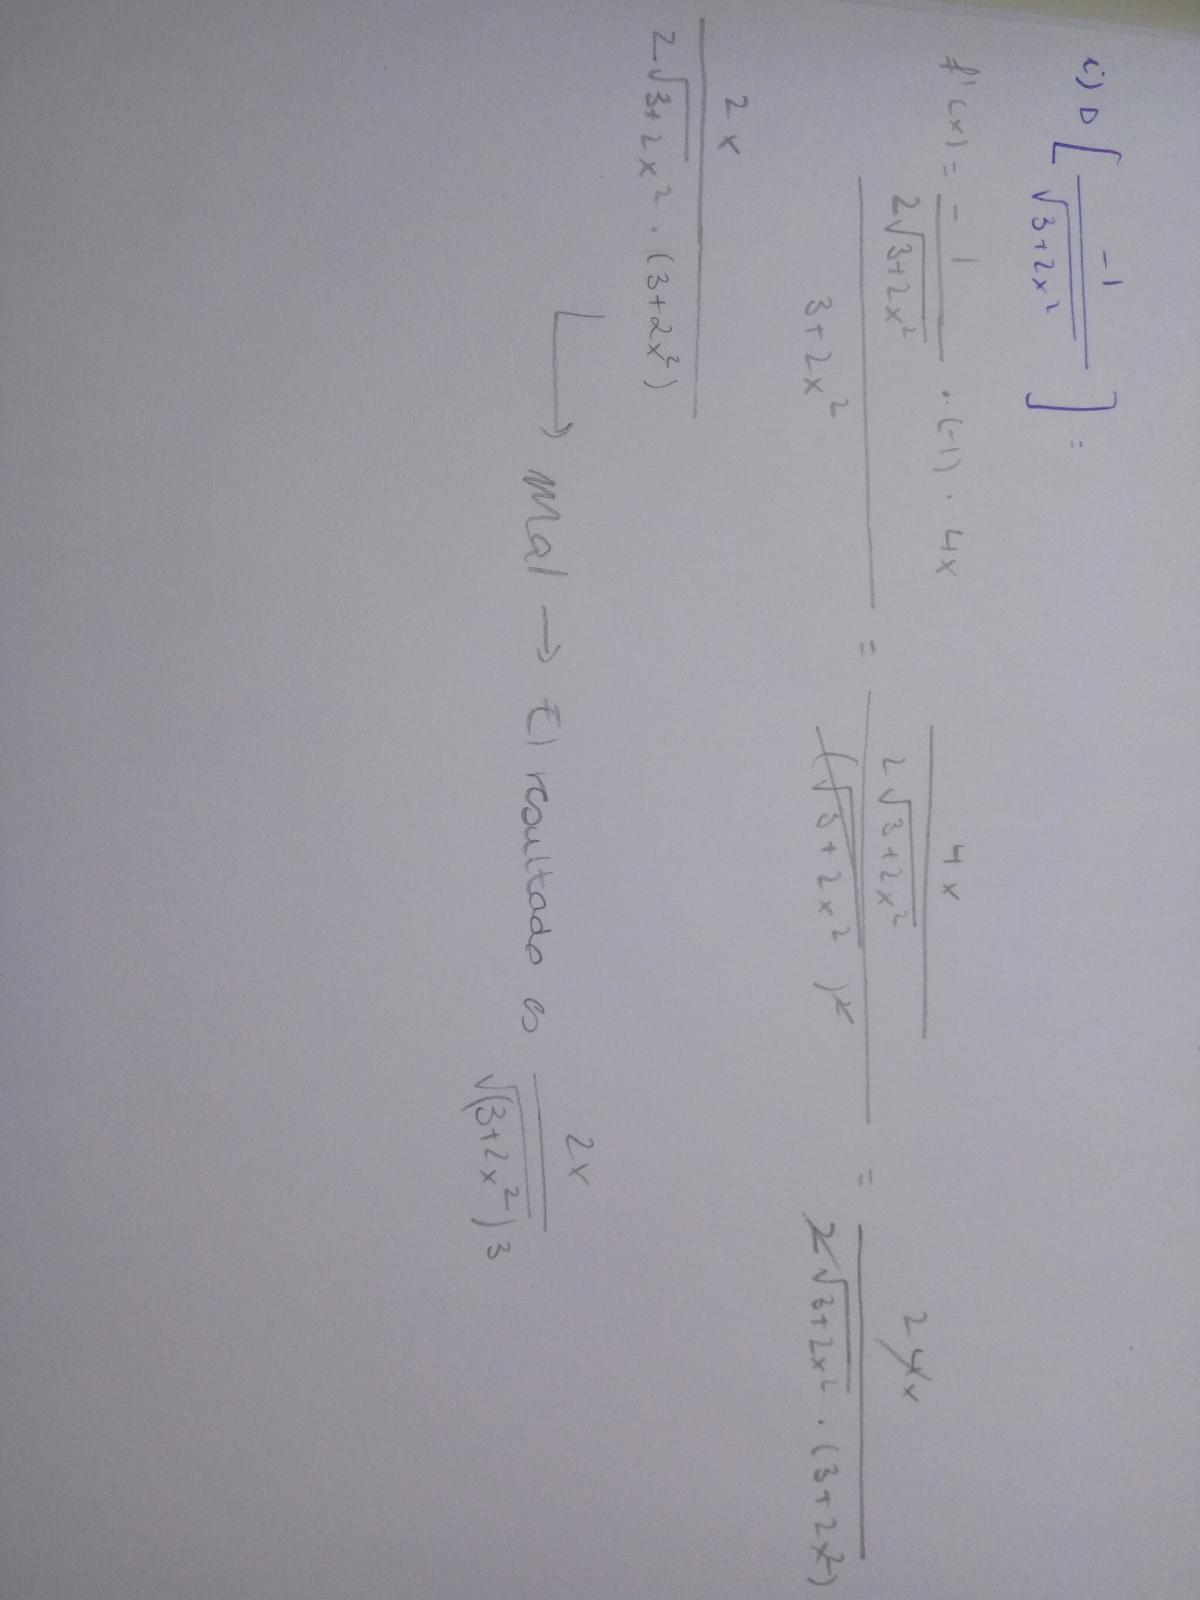 i) D [ -1 / √3+2x² ] =
f'(x) = - 1 / 2√3+2x² · (-1) · 4x / 3+2x² = 4x / 2√3+2x² / (√3+2x²)² = 2 4x / 2√3+2x² · (3+2x²)
2x / 2√3+2x² · (3+2x²)
→ Mal → El resultado es 2x / √(3+2x²)3